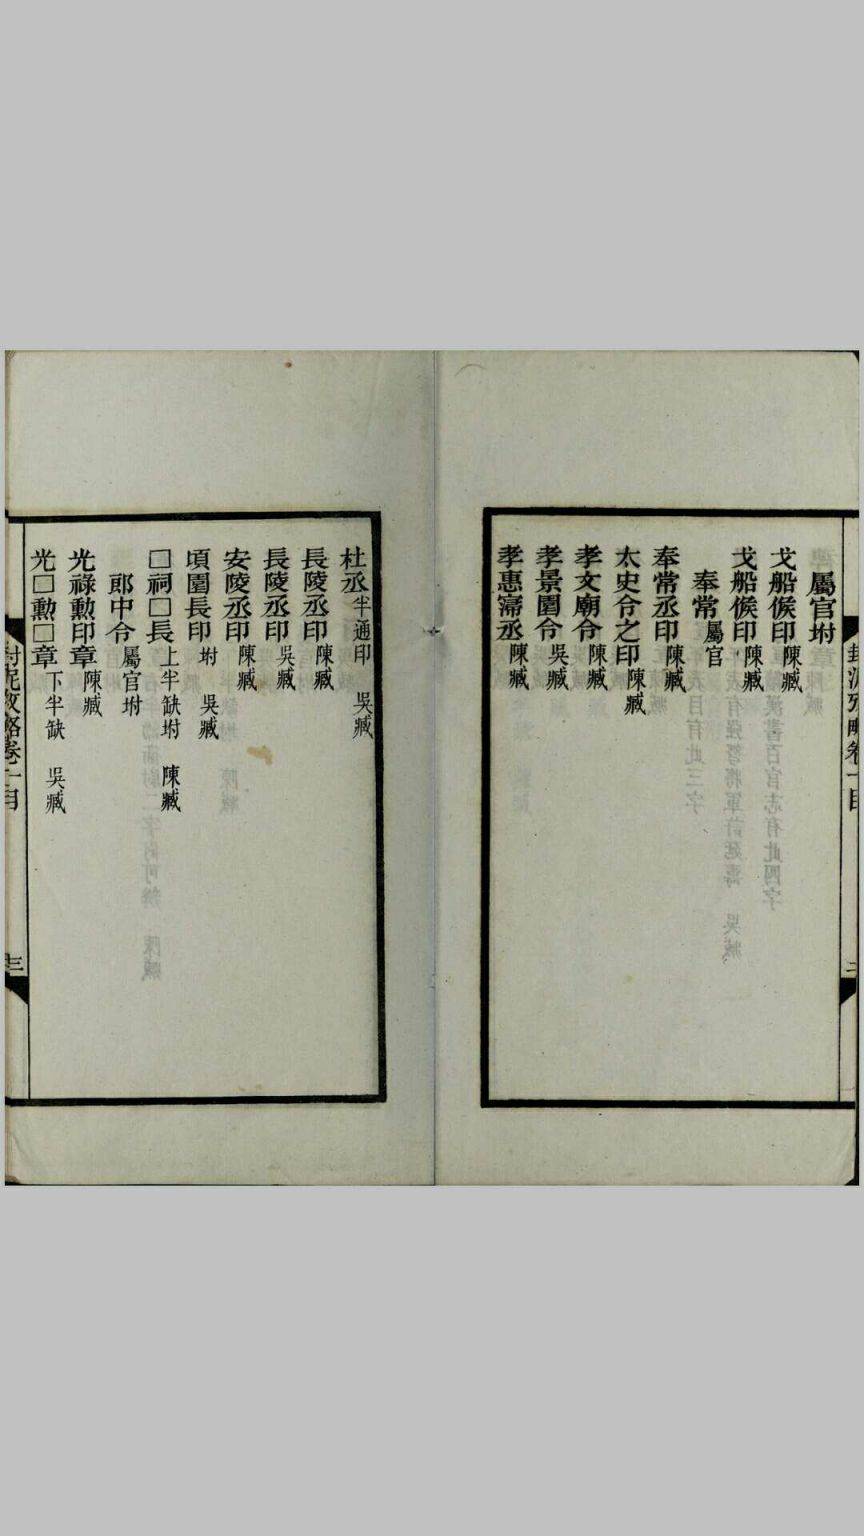 屬官坿
戈船候印 陳臧
戈船候印 陳臧
奉常 屬官
奉常丞印 陳臧
太史令之印 陳臧
孝文廟令 陳臧
孝景園令 吳臧
孝惠𡪢丞 陳臧
封泥攷略卷一目
二
杜丞 半通印 吳臧
長陵丞印 陳臧
長陵丞印 吳臧
安陵丞印 陳臧
頃園長印 坿 吳臧
□祠□長 上半缺坿 陳臧
郎中令 屬官坿
光祿勳印章 陳臧
光□勳□章 下半缺 吳臧
封泥攷略卷一目
三